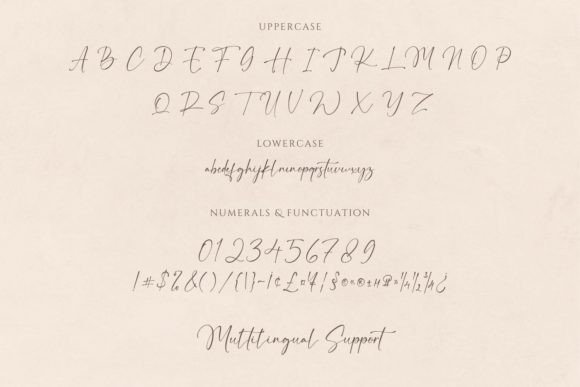 UPPERCASE
A B C D E F G H I J K L M N O P
Q R S T U V W X Y Z
LOWERCASE
abcdefghijklmnopqrstuvwxyz
NUMERALS & FUNCTUATION
0123456789
!#$%&()/{|}~¡¢£¤¥¦§©«®±¶»¼½¾¿
Multilingual Support